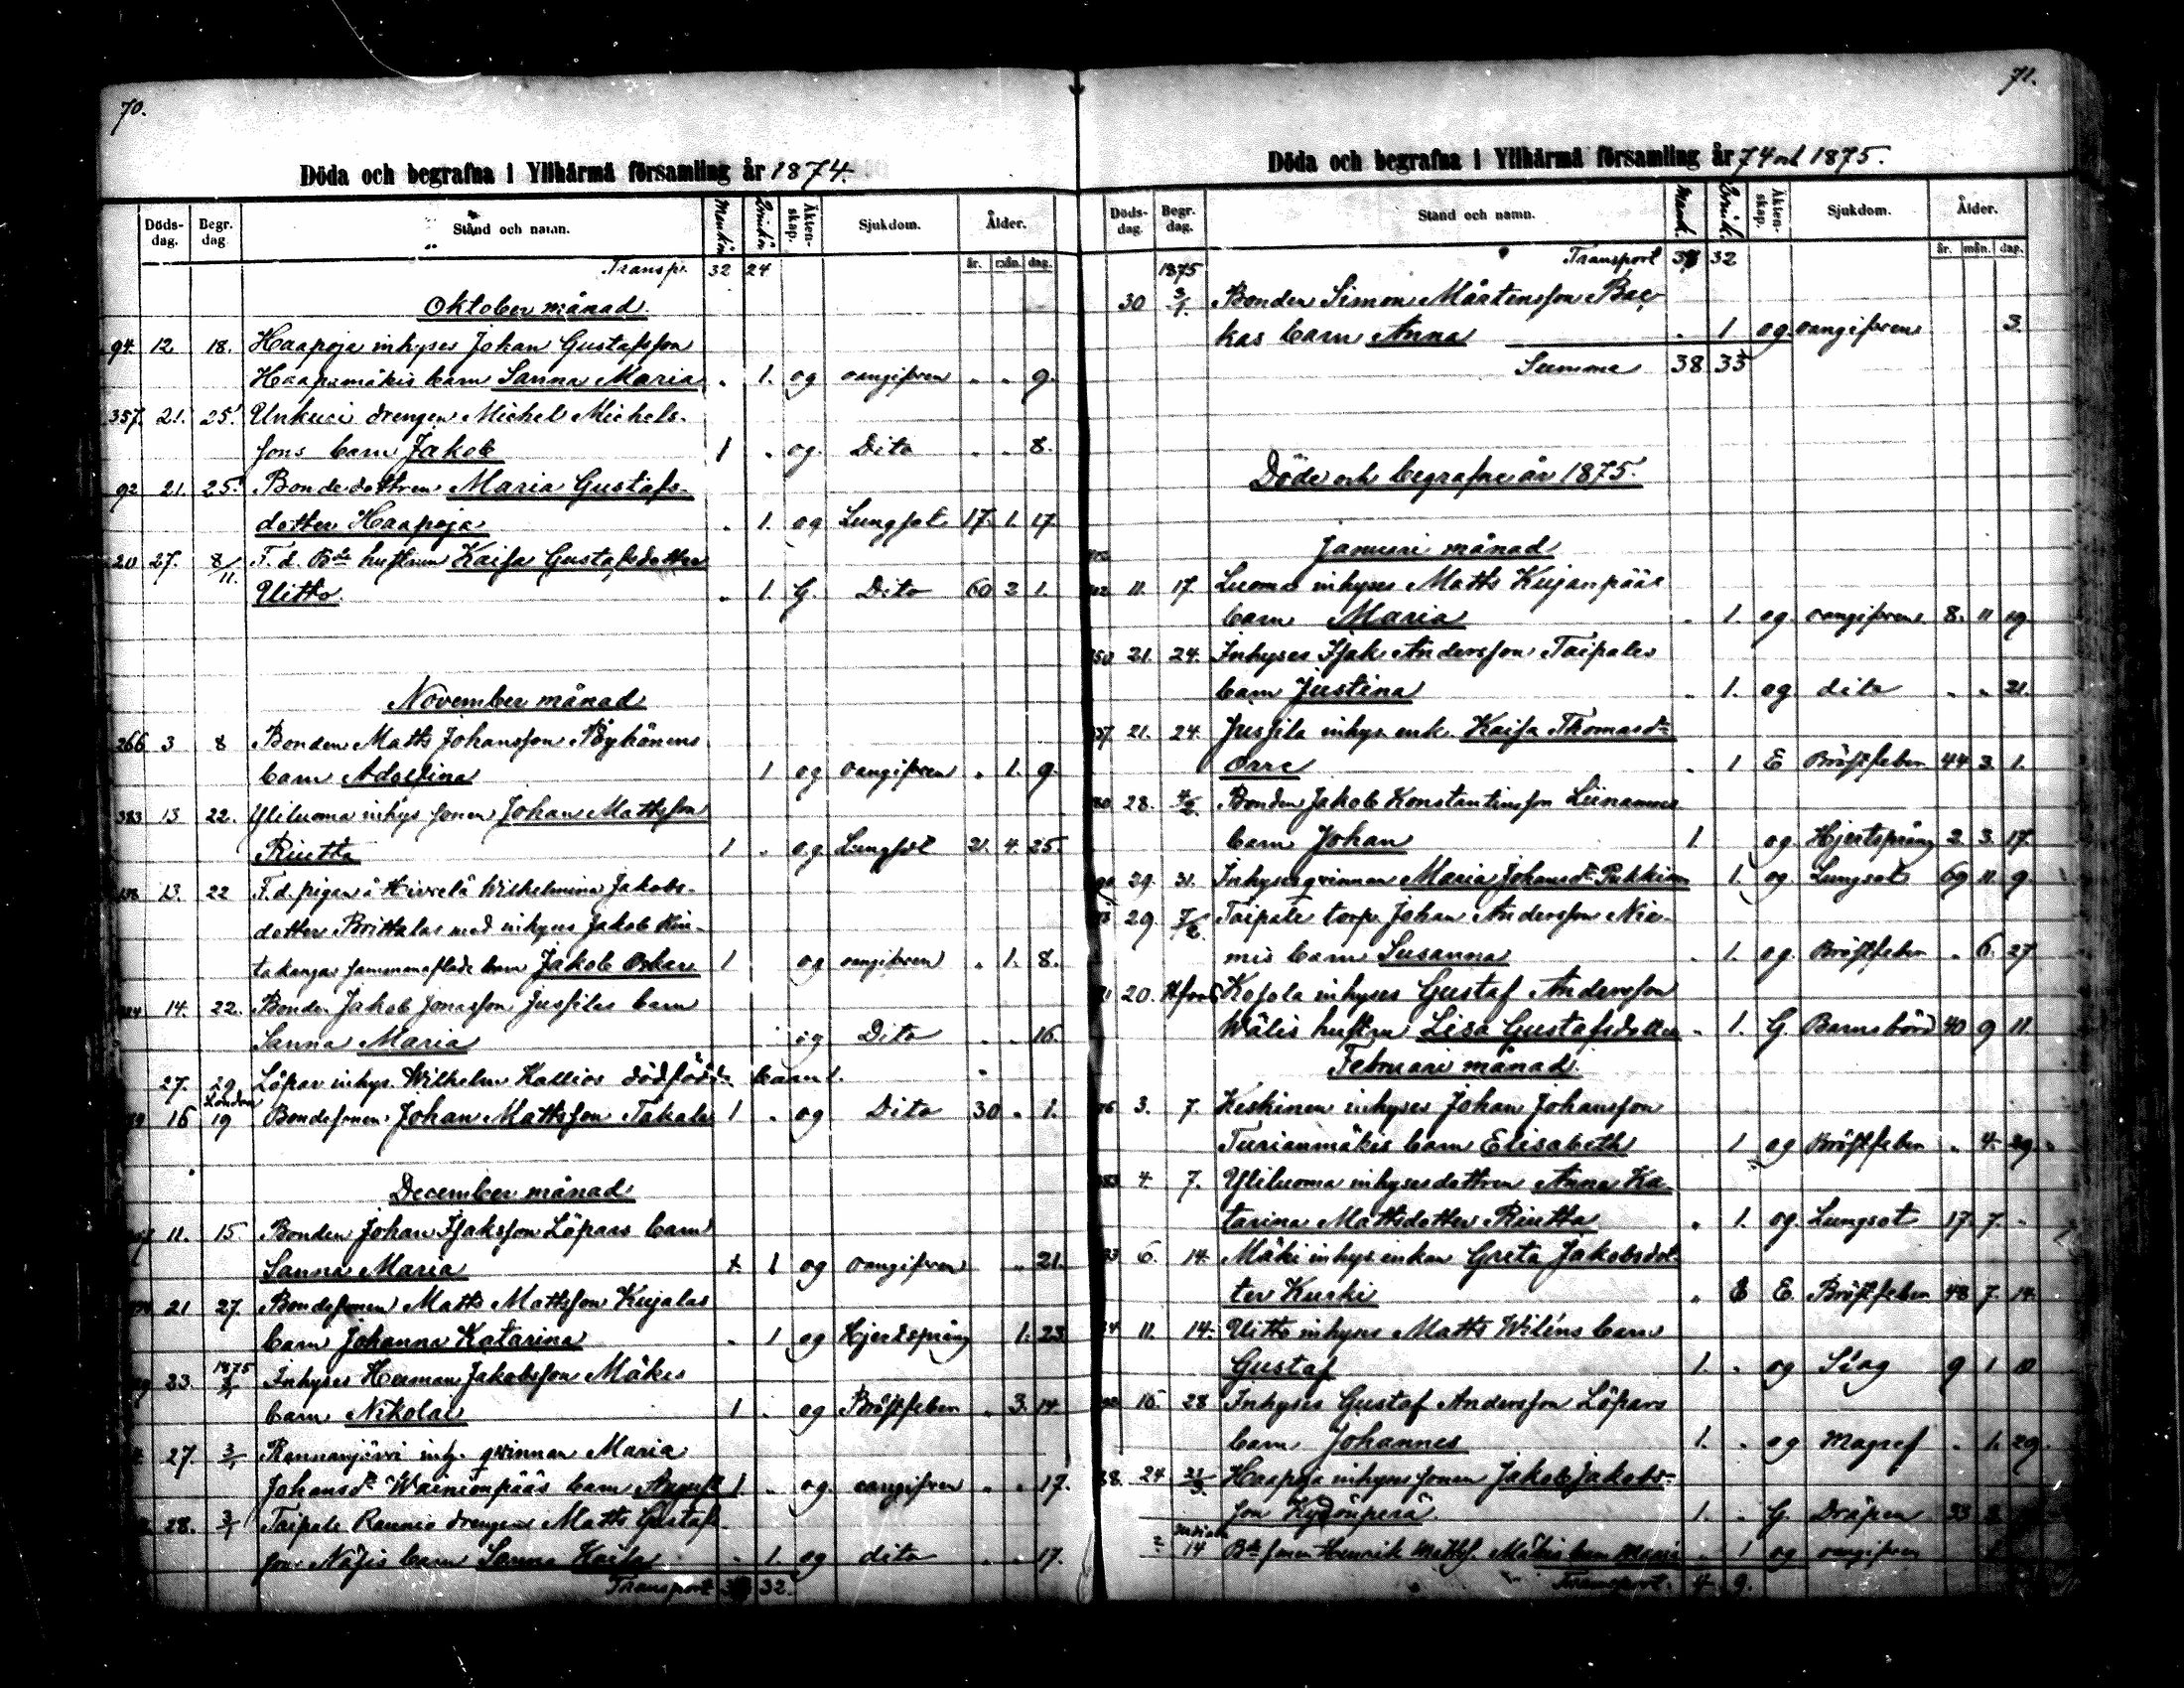 70.
Döda och begrafna i Ylihärmä församling år 1874.
Döds-dag. Begr. dag Stånd och namn. Mankön Qvinkön Äkten-skap. Sjukdom. Ålder.
år. mån. dag.
Transp. 32 24
Oktober månad.
94. 12. 18. Haapoja inhyses Johan Gustafsson
Haapamäkis barn Sanna Maria " 1. og oangifven " " 9.
357. 21. 25. Unkuri drengen Michel Michels-
sons barn Jakob 1 " og. Dito " " 8.
92 21. 25. Bondedottren Maria Gustafs-
dotter Haapoja " 1. og Lungsot 17. 1. 17.
20 27. 8/11. F. d. Bde hustrun Kaisa Gustafsdotter
Uitto " 1. G. Dito 60 2 1.
November månad
266 3 8 Bonden Matts Johansson Pöyhönens
barn Adolfina 1 og oangifven " 1. 9.
383 13 22. Yliluoma inhys sonen Johan Mattsson
Riutta 1 " og Lungsot 21. 4. 25.
138 13. 22 F. d. pigan å Hirvelä Wilhelmina Jakobs-
dotter Brittalas med inhyses Jakob
sammanaflade barn Jakob Oskar 1 og oangifven " 1. 8.
14. 22. Bonden Jakob Jonasson Jussilas barn
Sanna Maria og Dito " " 16.
27. 29 Löpar inhys. Wilhelm Kallios dödfödda barn 1.
16 19 Bondesonen Johan Mattsson Takala 1 " og Dito 30 " 1.
December månad
11. 15. Bonden Johan Isaksson Löpars barn
Sanna Maria 1 og oangifven " 21.
21 27. Bondesonen Matts Mattsson Kujalas
barn Johanna Katarina " 1 og Hjertsprång 1. 23
23. 1875 Inhyses Herman Jakobsson Mäkis
barn Nikolai 1 " og Bröstfeber " 3. 14.
27. 3/1 Rannanjärvi inh. qvinnan Maria
Johansdr Wainionpääs barn August 1 " og oangifven " " 17.
28. 3/1 Taipale Raunio drengen Matts Gustaf-
sons Näsis barn Sanna Kaisa " 1. og dito " " 17.
Transport 32.
71.
Döda och begrafna i Ylihärmä församling år 74 och 1875.
Döds-dag. Begr. dag. Stånd och namn. Mank. Qvink. Äkten-skap. Sjukdom. Ålder.
år. mån. dag.
Transport 32
1875
30 3/1. Bonden Simon Mårtensson Bac-
kas barn Anna " 1 og oangifven 3.
Summa 38 33
Döda och begrafne år 1875.
Januari månad
11. 17. Luoma inhyses Matts Kujanpääs
barn Maria " 1. og. oangifven 8. 11 19
21. 24. Inhyses Isak Andersson Taipales
barn Justina " 1. og dito " " 21.
21. 24. Jussila inhys. enk. Kaisa Thomasdr
" 1 E Bröstfeber 44 3. 1.
28. 4/2. Bonden Jakob Konstantinsson Liinamaas
barn Johan 1 og Hjertsprång 2 3. 17.
29. 31. Inhysesqvinnan Maria Johansdr Pukkinen 1. og. Lungsot 69 11. 9.
29. 7/2. Taipale torp. Johan Andersson Nie-
mis barn Susanna " 1. og. Bröstfeber " 6. 27.
20. Kosola inhyses Gustaf Andersson
Wälis hustru Lisa Gustafsdotter " 1. G. Barnsbörd 40 9 11.
Februari månad
3. 7. Keskinen inhyses Johan Johansson
Turjanmäkis barn Elisabeth 1 og Bröstfeber " 4. 29.
4. 7. Yliluoma inhysesdottren Anna Ka-
tarina Mattsdotter Riutta " 1. og. Lungsot 17. 7. "
6. 14. Mäki inhys. enkan Greta Jakobsdot-
ter Kurki " E. Bröstfeber 48 7. 14.
11. 14. Uitto inhyses Matts Wiléns barn
Gustaf 1. " og Slag 9 1 10
16. 28 Inhyses Gustaf Andersson Löpars
barn Johannes 1. " og Magref " 1. 29.
88. 24 21/3. Haapoja inhysessonen Jakob Jakobs-
son Kydönperä 1. " G. Dråpen 33
14 Bde sonen Henrik Mattss. Mäkis barn Maria " 1 og oangifven
Transport. 4 9.